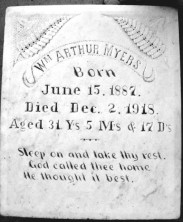 WM ARTHUR MYERS
Born
June 15, 1887.
Died Dec. 2, 1918.
Aged 31 Ys 5 Ms & 17 Ds
Sleep on and take thy rest.
God called thee home
He thought it best.